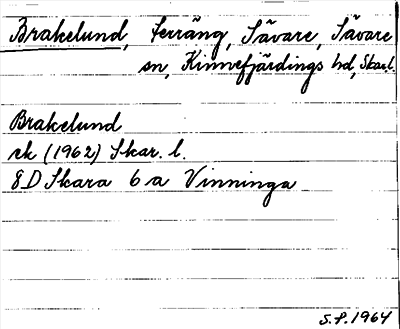 Brakelund, terräng, Sävare, Sävare
sn, Kinnefjärdings hd, Skar.l.
Brakelund
ek (1962) Skar. l.
8D Skara 6 a Vinninga
S.P. 1964